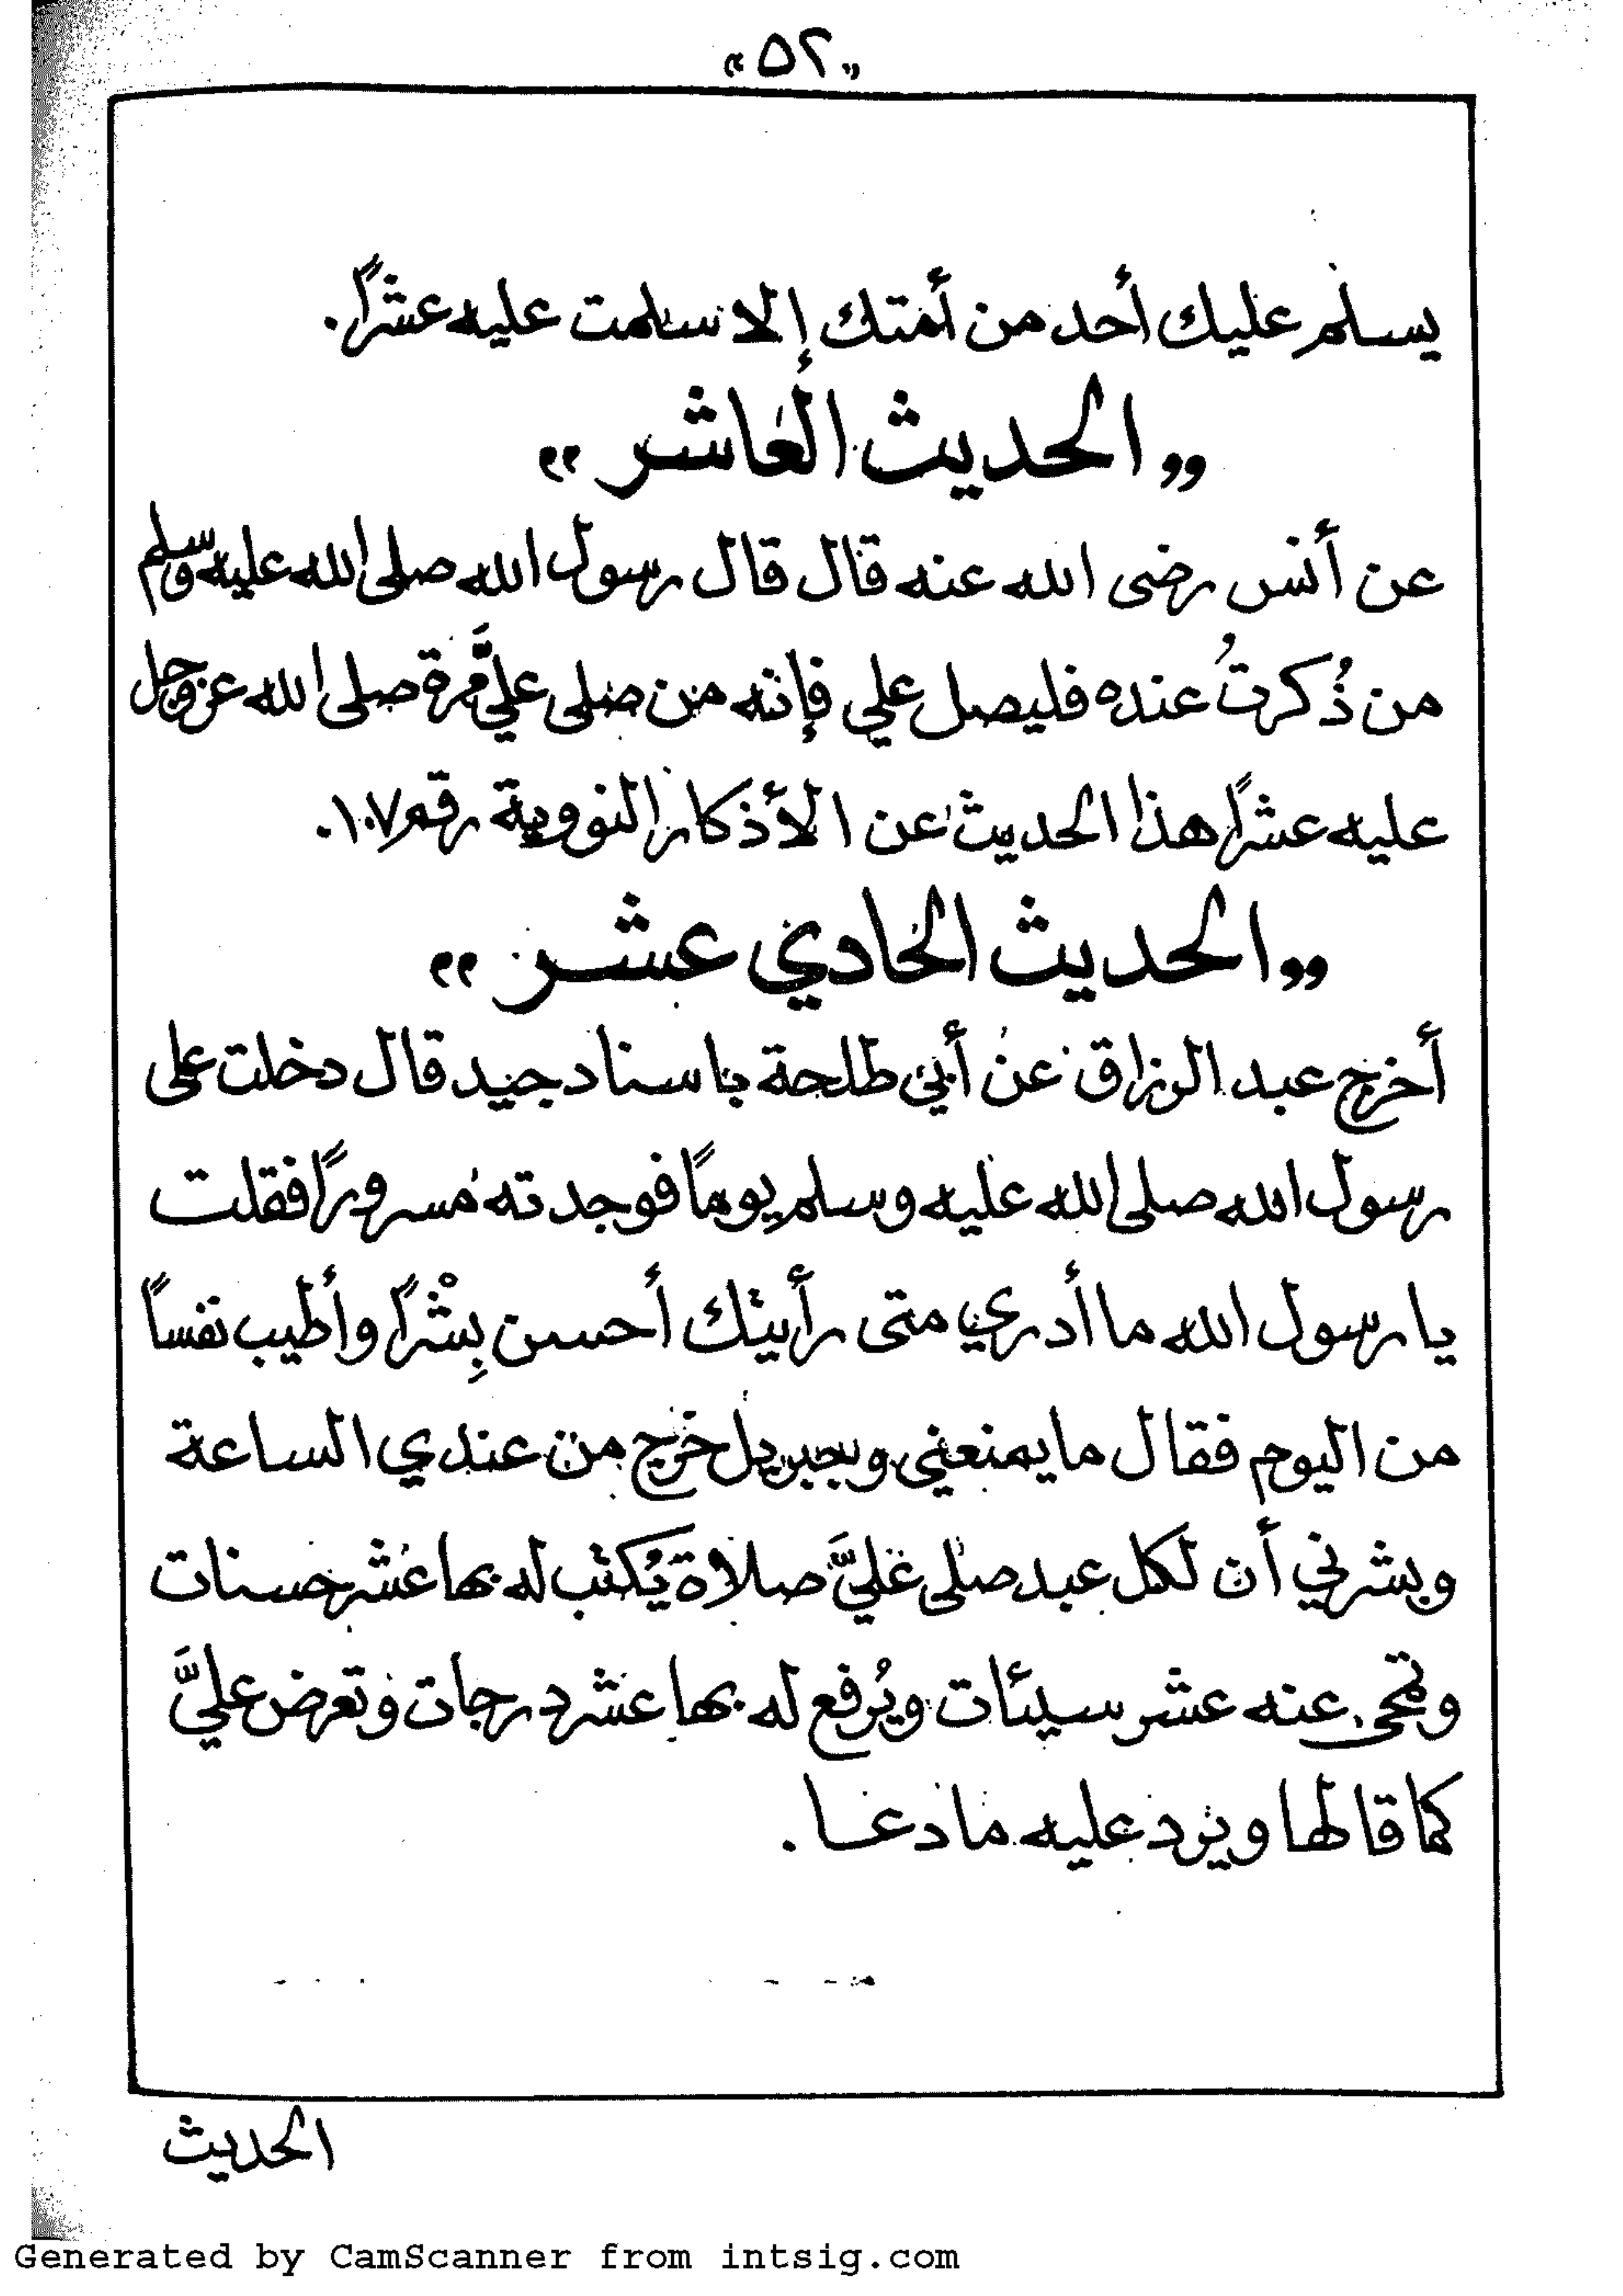 «٥٢»
يسلم عليك أحد من أمتك إلا سلمت عليه عشرًا.
„الحديث العاشر”
عن أنس رضى الله عنه قال قال رسول الله صلى الله عليه وسلم
من ذُكرتُ عنده فليصل علي فإنه من صلى عليَّ مرة صلى الله عز وجل
عليه عشرًا هذا الحديث عن الأذكار النووية رقم ١٠٧.
„الحديث الحادي عشر”
أخرج عبد الرزاق عن أبي طلحة باسناد جيد قال دخلت على
رسول الله صلى الله عليه وسلم يومًا فوجدته مسرورًا فقلت
يا رسول الله ما أدري متى رأيتك أحسن بِشْرًا وأطيب نفساً
من اليوم فقال ما يمنعني وجبريل خرج من عندي الساعة
وبشرني أن لكل عبد صلى عليَّ صلاة يُكتب له بها عشر حسنات
وتمحى عنه عشر سيئات ويُرفع له بها عشر درجات وتعرض عليَّ
كما قالها ويرد عليه ما دعا.
الحديث
Generated by CamScanner from intsig.com